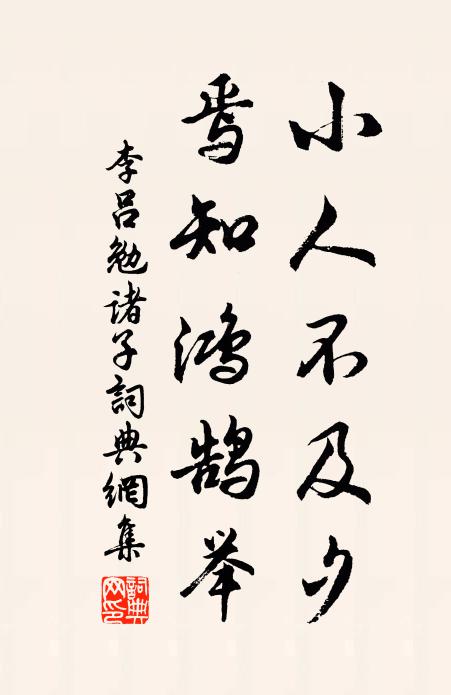 小人不及夕
焉知鸿鹄举
李吕勉诸子詞典網集
詞典网印